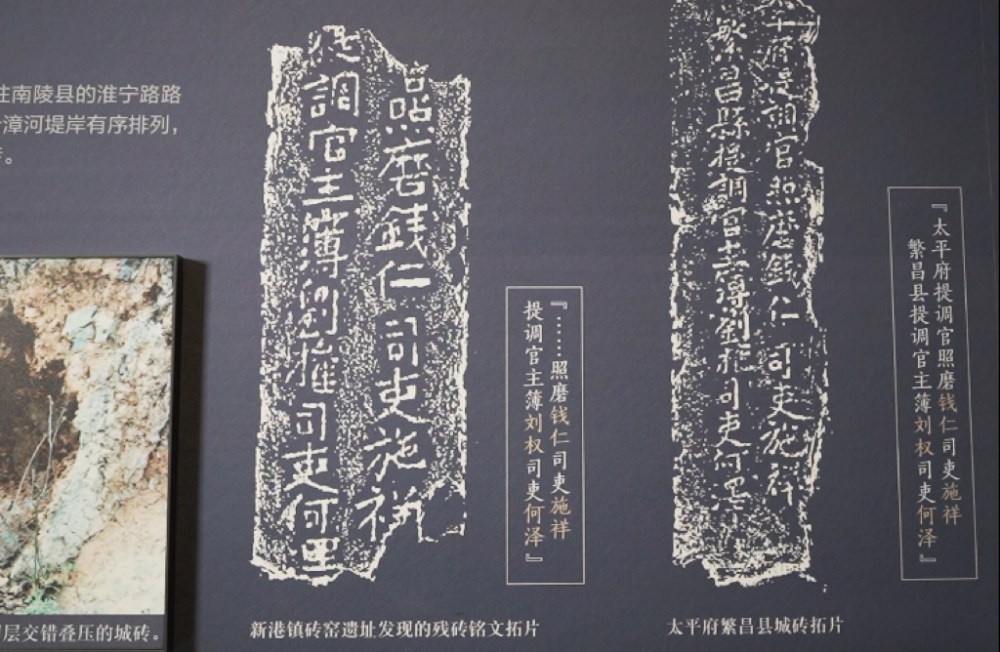 往南陵县的淮宁路路
漳河堤岸有序排列，
。
层交错叠压的城砖。
照磨錢仁司吏施祥
提調官主簿劉權司吏何
『……照磨钱仁司吏施祥
提调官主簿刘权司吏何泽』
新港镇砖窑遗址发现的残砖铭文拓片
太平府提調官照磨錢仁司吏施祥
繁昌縣提調官主簿劉权司吏何澤
『太平府提调官照磨钱仁司吏施祥
繁昌县提调官主簿刘权司吏何泽』
太平府繁昌县城砖拓片